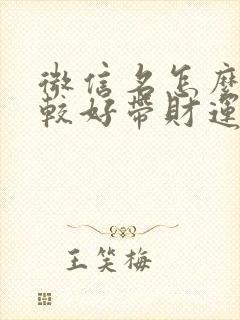 微信名怎麽
較好帶財運
王笑梅